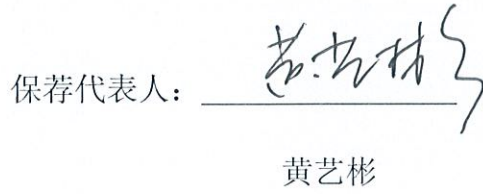 保荐代表人：黄艺彬
黄艺彬